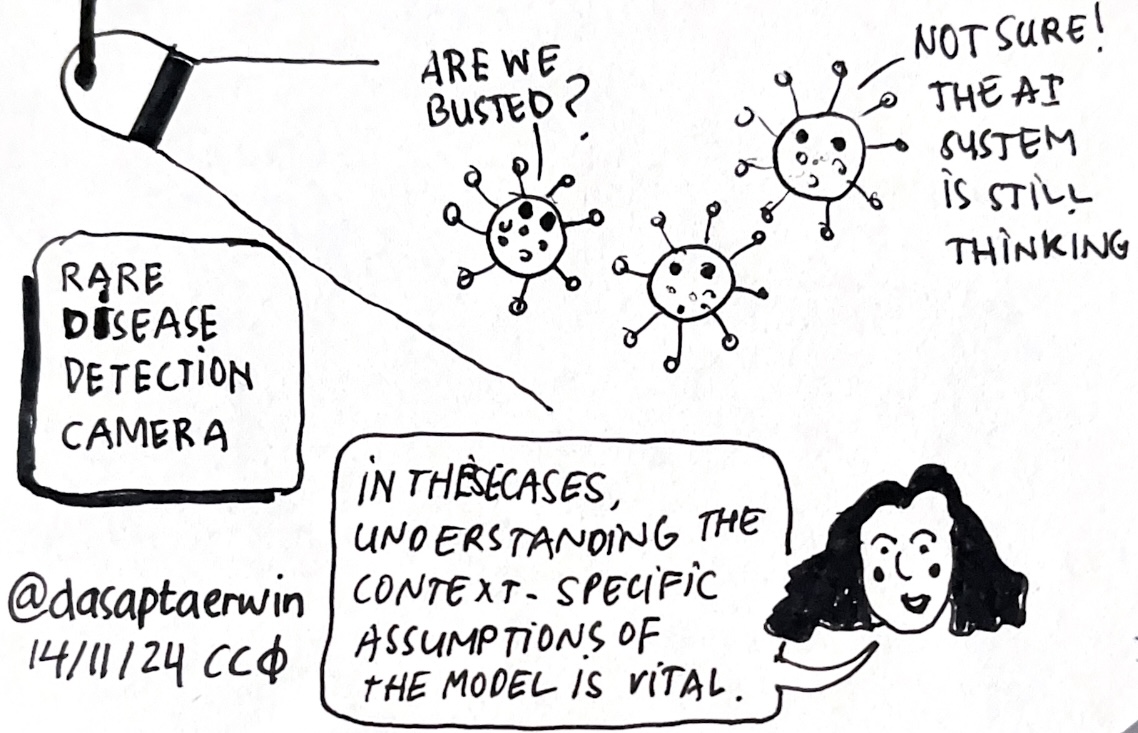 ARE WE
BUSTED?
NOT SURE!
THE AI
SYSTEM
IS STILL
THINKING
RARE
DISEASE
DETECTION
CAMERA
IN THESE CASES,
UNDERSTANDING THE
CONTEXT- SPECIFIC
ASSUMPTIONS OF
THE MODEL IS VITAL.
@dasaptaerwin
14/11/24 CC0